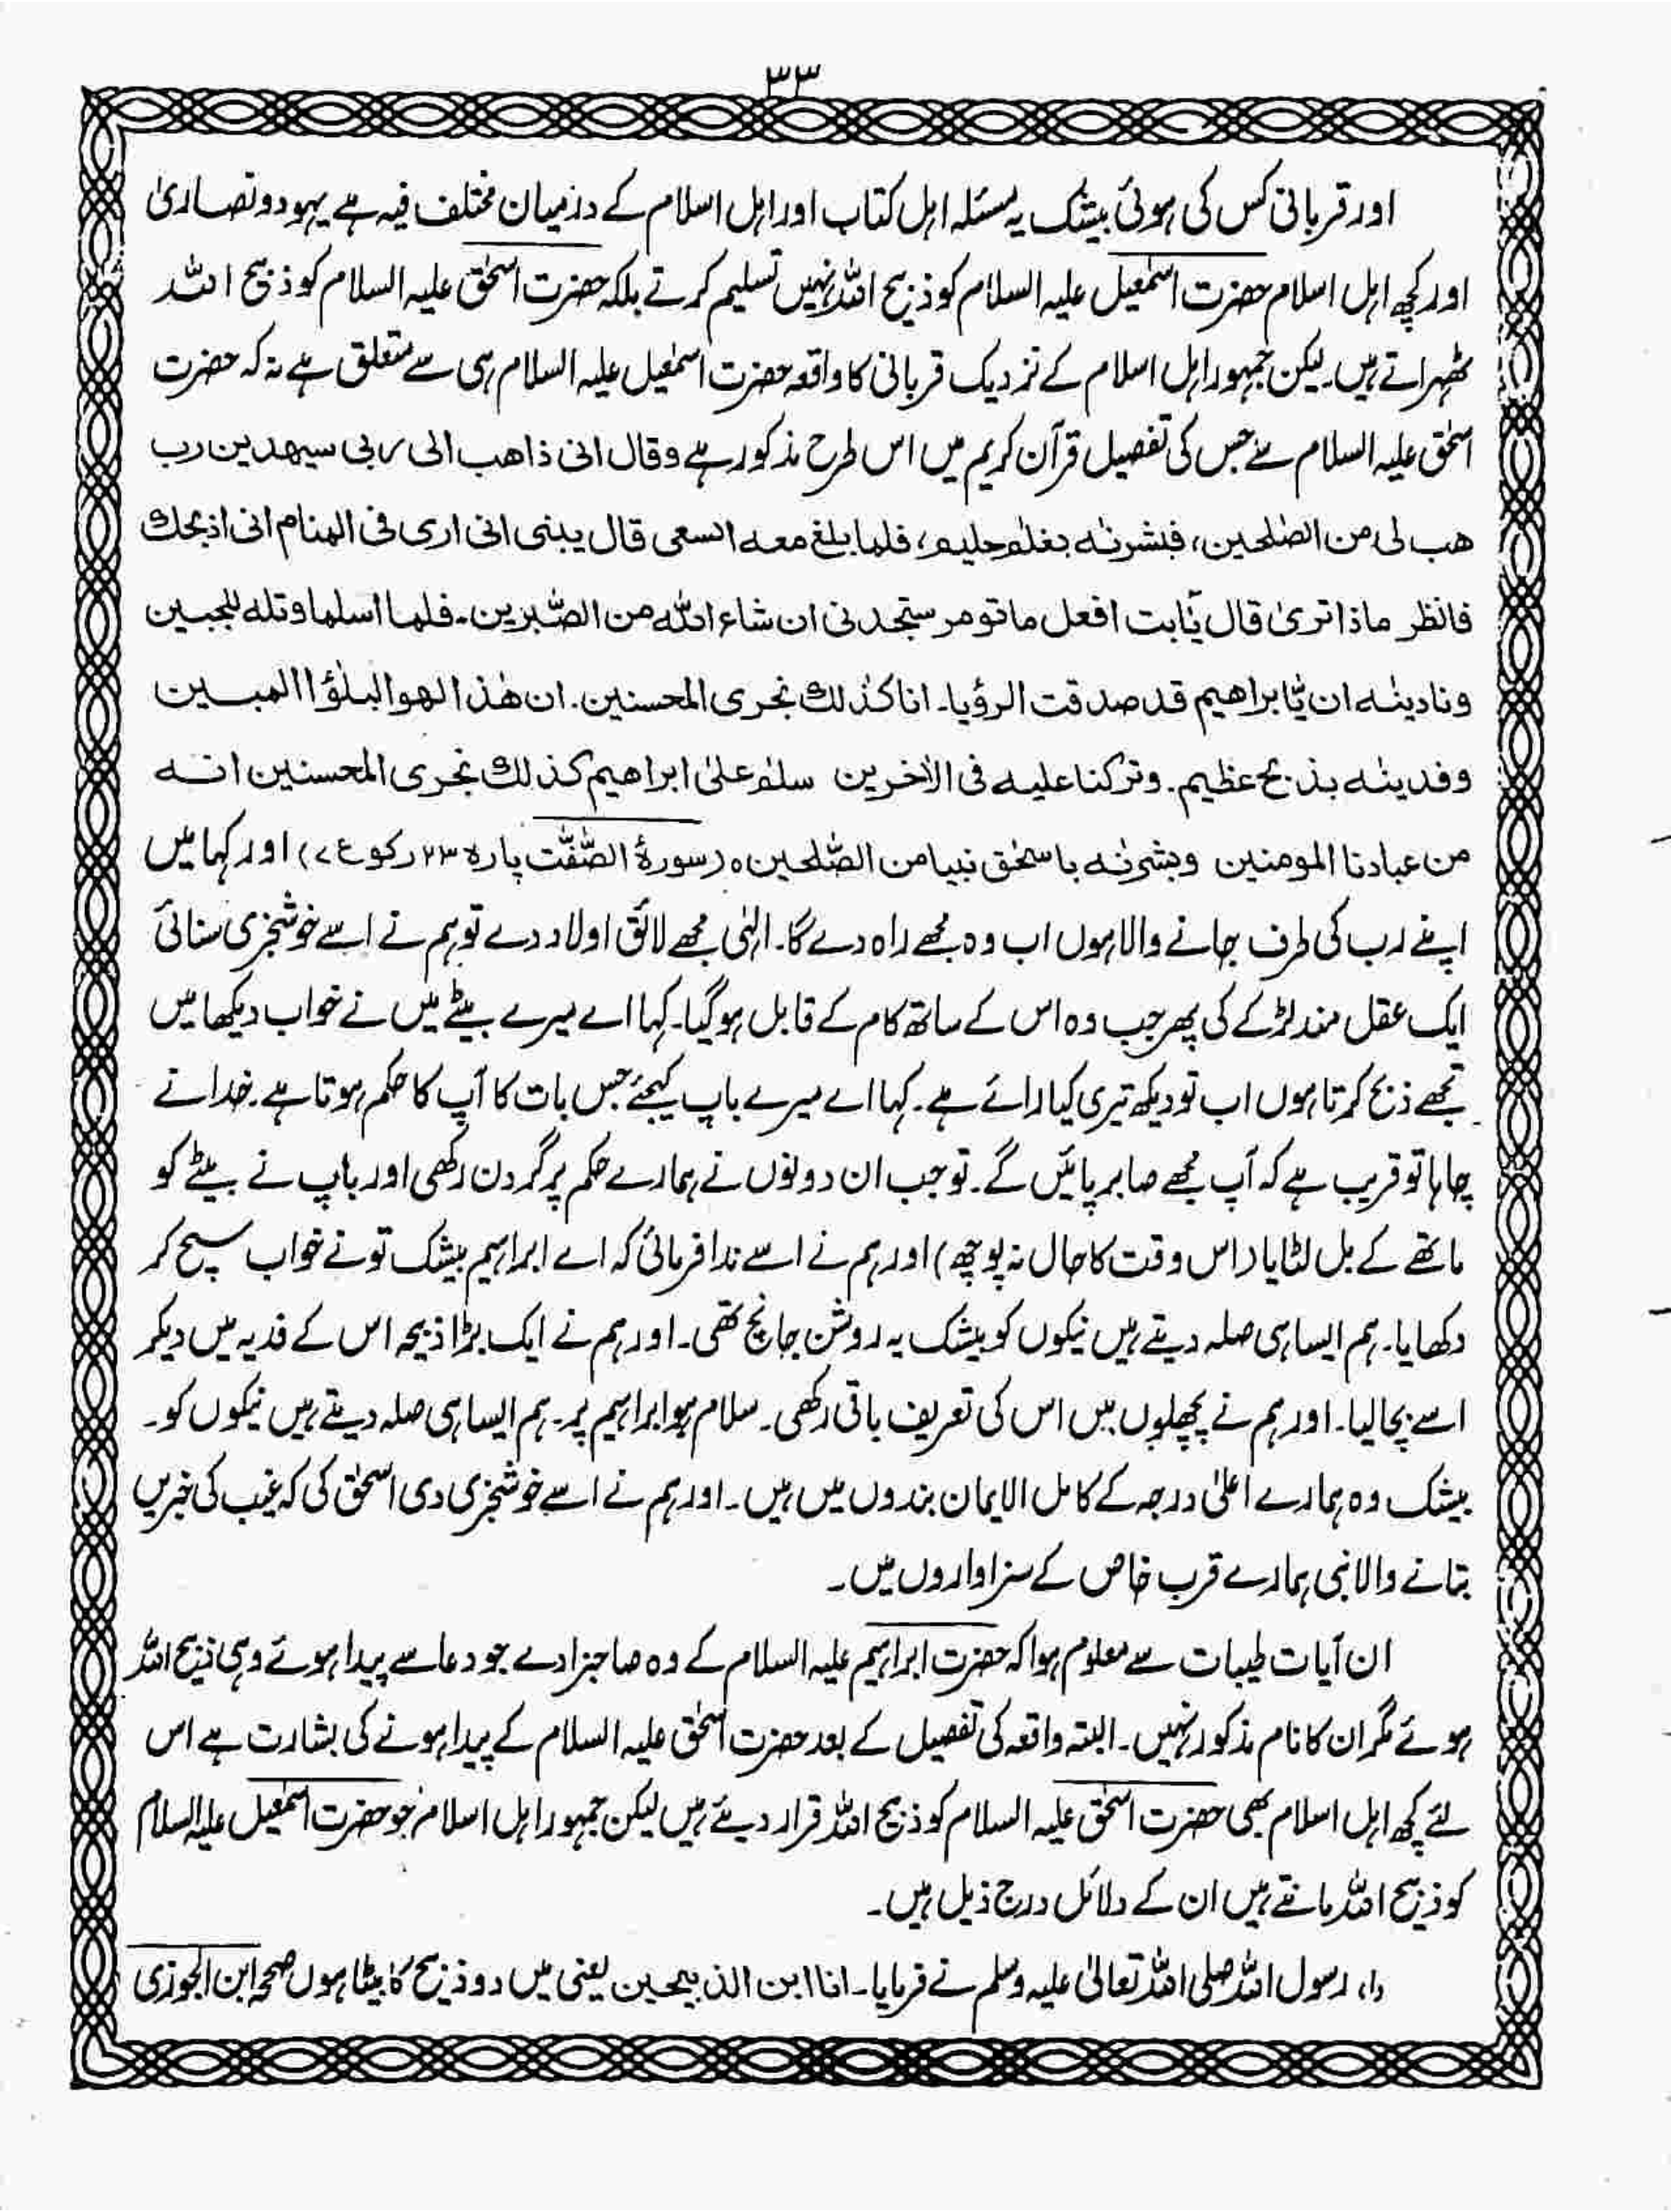 ۳۳
اور قربانی کس کی ہوئی بیشک یہ مسئلہ اہل کتاب اور اہل اسلام کے درمیان مختلف فیہ ہے یہود و نصاریٰ
اور کچھ اہل اسلام حضرت اسمٰعیل علیہ السلام کو ذبیح اللہ نہیں تسلیم کرتے بلکہ حضرت اسحٰق علیہ السلام کو ذبیح اللہ
ٹھہراتے ہیں۔ لیکن جمہور اہل اسلام کے نزدیک قربانی کا واقعہ حضرت اسمٰعیل علیہ السلام ہی سے متعلق ہے نہ کہ حضرت
اسحٰق علیہ السلام سے جس کی تفصیل قرآن کریم میں اس طرح مذکور ہے وقال انی ذاھب الی ربی سیھدین رب
ھب لی من الصٰلحین، فبشرنٰہ بغلٰم حلیم، فلما بلغ معہ السعی قال یبنی انی اری فی المنام انی اذبحک
فانظر ماذا تریٰ قال یٰٓابت افعل ما تومر ستجدنی ان شاء اللہ من الصّٰبرین۔ فلما اسلما وتلہ للجبین
ونادینٰہ ان یّٰابراھیم قد صدقت الرؤیا۔ انا کذٰلک نجری المحسنین۔ ان ھٰذا لھو البلٰؤا المبین
وفدینٰہ بذبح عظیم۔ وترکنا علیہ فی الاٰخرین سلٰم علیٰ ابراھیم کذلک نجری المحسنین انہ
من عبادنا المومنین وبشرنٰہ باسحٰق نبیا من الصّٰلحین ہ (سورۂ الصّٰفّٰت پارہ ۲۳ رکوع ۷) اور کہا میں
اپنے رب کی طرف جانے والا ہوں اب وہ مجھے راہ دے گا۔ الٰہی مجھے لائق اولاد دے تو ہم نے اسے خوشخبری سنائی
ایک عقل مند لڑکے کی پھر جب وہ اس کے ساتھ کام کے قابل ہو گیا۔ کہا اے میرے بیٹے میں نے خواب دیکھا میں
تجھے ذبح کرتا ہوں اب تو دیکھ تیری کیا رائے ہے۔ کہا اے میرے باپ کیجئے جس بات کا آپ کا حکم ہوتا ہے۔ خدا نے
چاہا تو قریب ہے کہ آپ مجھے صابر پائیں گے۔ تو جب ان دونوں نے ہمارے حکم پر گردن رکھی اور باپ نے بیٹے کو
ماتھے کے بل لٹایا (اس وقت کا حال نہ پوچھ) اور ہم نے اسے ندا فرمائی کہ اے ابراہیم بیشک تو نے خواب سچ کر
دکھایا۔ ہم ایسا ہی صلہ دیتے ہیں نیکوں کو بیشک یہ روشن جانچ تھی۔ اور ہم نے ایک بڑا ذبیحہ اس کے فدیہ میں دیکر
اسے بچا لیا۔ اور ہم نے پچھلوں میں اس کی تعریف باقی رکھی۔ سلام ہو ابراہیم پر۔ ہم ایسا ہی صلہ دیتے ہیں نیکوں کو۔
بیشک وہ ہمارے اعلیٰ درجہ کے کامل الایمان بندوں میں ہیں۔ اور ہم نے اسے خوشخبری دی اسحٰق کی کہ غیب کی خبریں
بتانے والا نبی ہمارے قرب خاص کے سزاواروں میں۔
ان آیات طیبات سے معلوم ہوا کہ حضرت ابراہیم علیہ السلام کے وہ صاحبزادے جو دعا سے پیدا ہوئے وہی ذبیح اللہ
ہوئے مگر ان کا نام مذکور نہیں۔ البتہ واقعہ کی تفصیل کے بعد حضرت اسحٰق علیہ السلام کے پیدا ہونے کی بشارت ہے اس
لئے کچھ اہل اسلام بھی حضرت اسحٰق علیہ السلام کو ذبیح اللہ قرار دیئے ہیں لیکن جمہور اہل اسلام جو حضرت اسمٰعیل علیہ السلام
کو ذبیح اللہ مانتے ہیں ان کے دلائل درج ذیل ہیں۔
(۱) رسول اللہ صلی اللہ تعالیٰ علیہ وسلم نے فرمایا۔ انا ابن الذبیحین یعنی میں دو ذبیح کا بیٹا ہوں صححہ ابن الجوزی